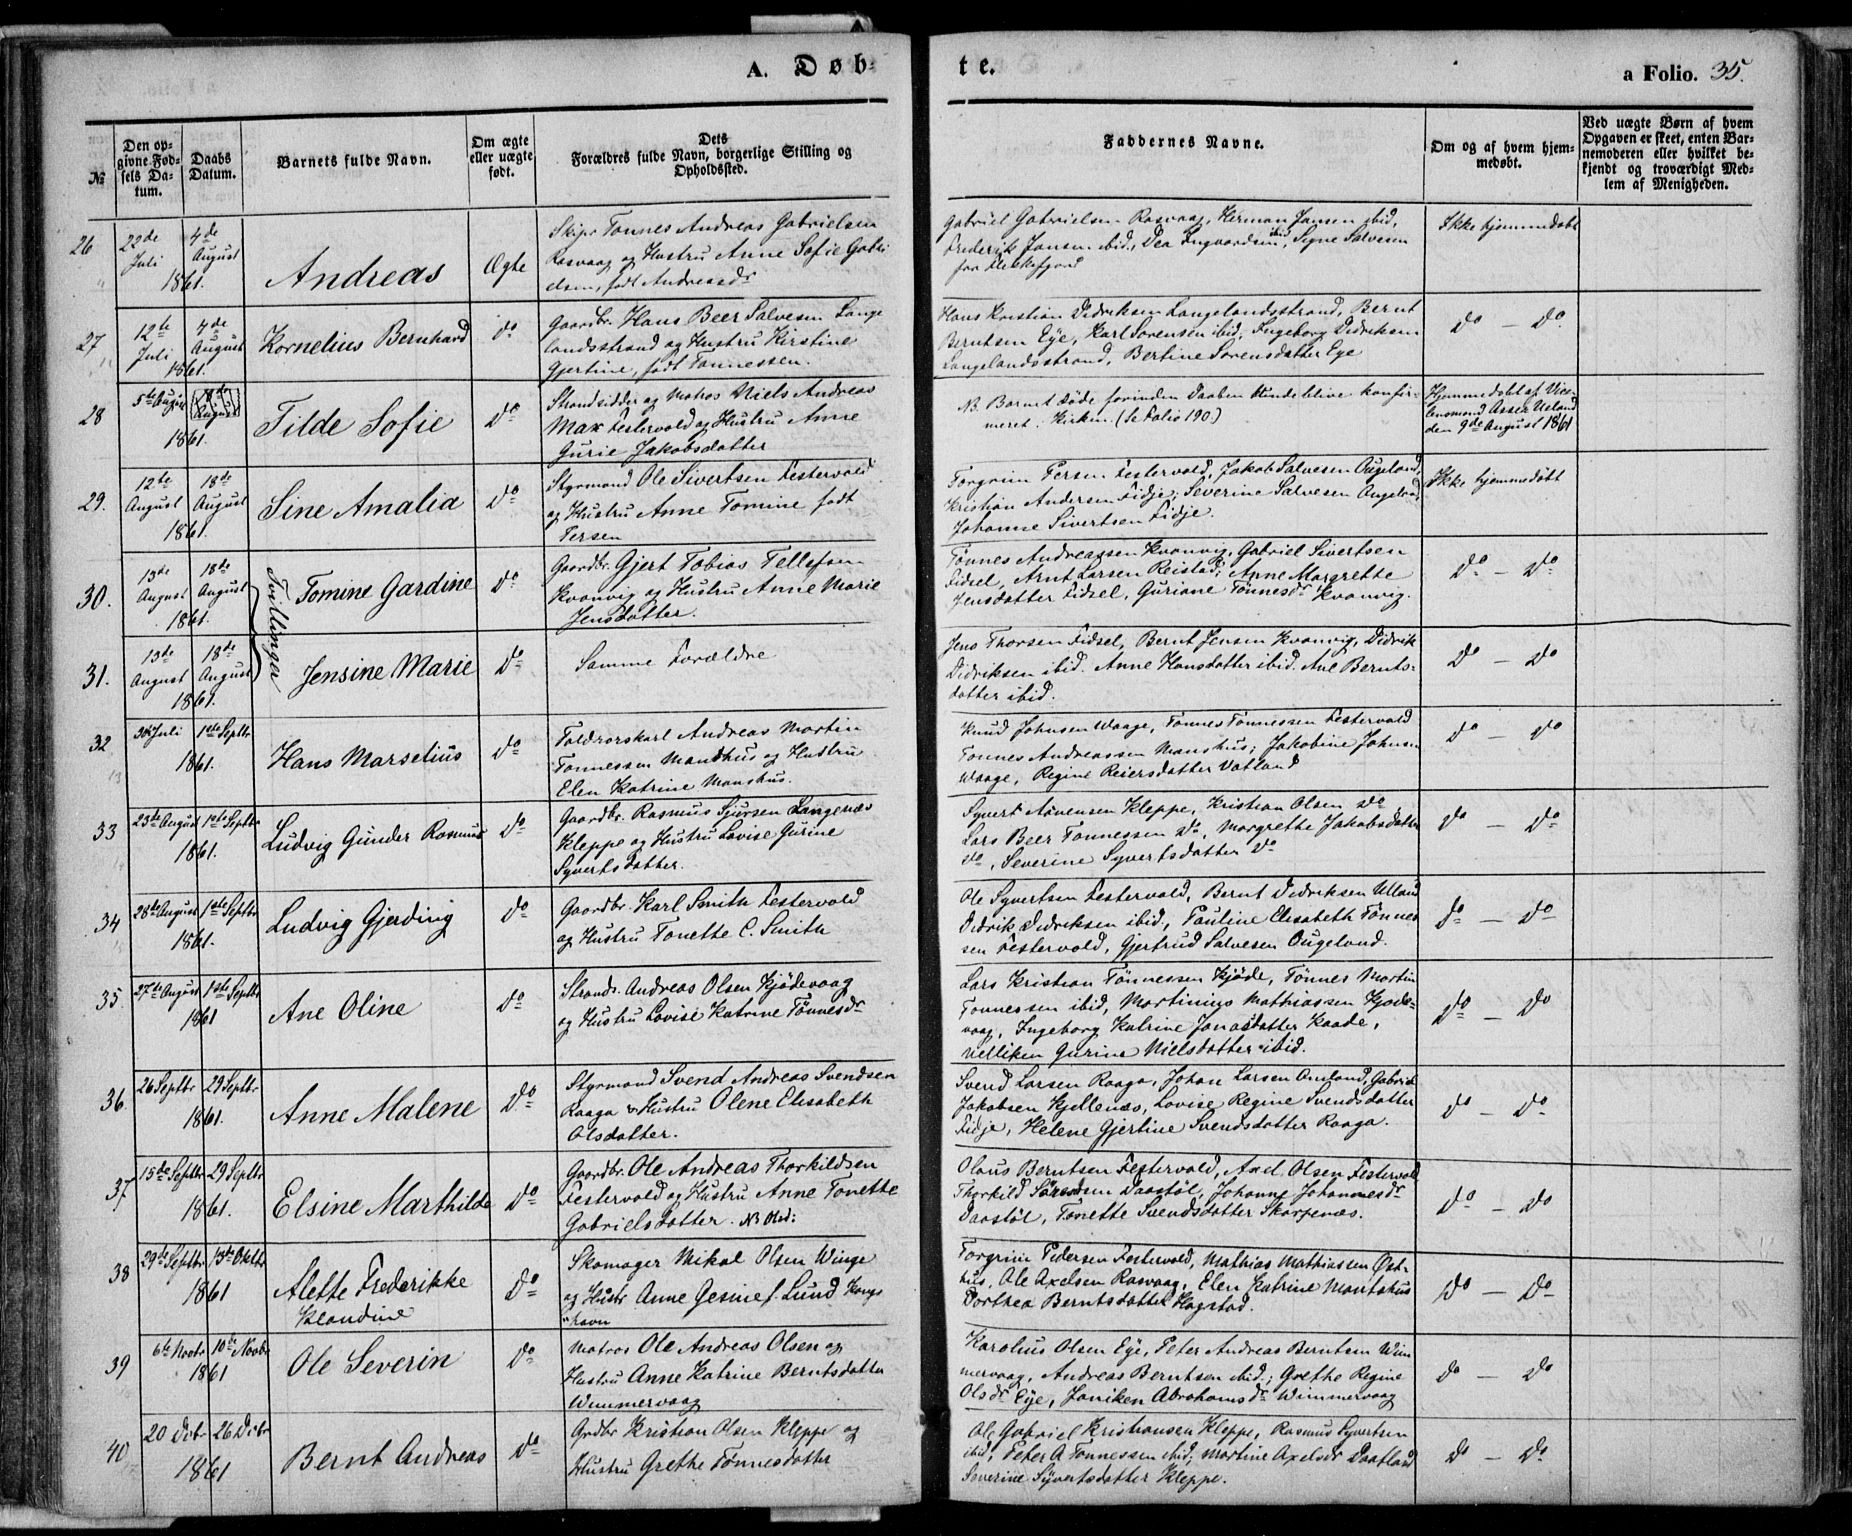 A. Døb-
te.
a Folio. 35.
№
Den op-
givne Fød-
sels Da-
tum.
Daabs
Datum.
Barnets fulde Navn.
Om ægte
eller uægte
født.
Dets
Forældres fulde Navn, borgerlige Stilling og
Opholdssted.
Faddernes Navne.
Om og af hvem hjem-
medøbt.
Ved uægte Børn af hvem
Opgaven er skeet, enten Bar-
nemoderen eller hvilket be-
kjendt og troværdigt Med-
lem af Menigheden.
26
22de
Juli
4de
August
1861.
Andreas
Ægte
Skipr Tonnes Andreas Gabrielsen
Rasvaag og Hustru Anne Sofie Gabri
elsen, født Andreasdr
Gabriel Gabrielsen Rasvaag, Herman Jansen ibid,
Frederik Jansen ibid., Dea Ingvardsen ibid, Signe Salvesen
fra Flekkefjord
Ikke hjemmedøbt
27
12te
Juli
4de
August
1861.
Kornelius Bernhard
do
Gaardbr. Hans Beer Salvesen Lange
landsstrand og Hustru Kirstine
Gjertine, født Tonnessen.
Hans Kristian Didriksen Langelandsstrand, Bernt
Berntsen Eye, Karl Sorensen ibid, Ingeborg Didriksen
Langelandsstrand, Bertine Sorensdatter Eye
do — do
28
5te August
August
1861.
Tilde Sofie
do
Strandsidder og Matros Niels Andreas
Max Festervold og Hustru Anne
Gurie Jakobsdatter
NB. Barnet døde forinden Daaben kunde blive konfir-
meret i Kirken. (se Folio 190.)
Hjemmedøbt af
Asser Ueland
den 9de August 1861
29.
12te
August
18de
August
1861.
Sine Amalia
do
Styrmand Ole Sivertsen Festervold
og Hustru Anne Tomine født
Persen
Torgrim Persen Festervold, Jakob Salvesen Ougeland,
Kristian Andersen Fidje, Severine Salvesen Ougeland,
Johanne Sivertsen Fidje.
Ikke hjemmedøbt
30.
13de
August
18de
August
1861.
Tvillinger
Tomine Gardine
do
Gaardbr. Gjert Tobias Tellefsen
Kvanvig og Hustru Anne Marie
Jensdatter.
Tönnes Andreassen Kvanvig, Gabriel Sivertsen
Fidsel, Arnt Larsen Reistad, Anne Margrette
Jensdatter Fidsel, Guriane Tönnesdr Kvanvig.
do — do
31.
13de
August
18de
August
1861.
Jensine Marie
do
Samme Forældre
Jens Thorsen Fidsel, Bernt Jensen Kvanvig, Didrik
Didriksen ibid. Anne Hansdatter ibid. Ane Bernts-
datter ibid.
do — do
32
30te Juli
1ste Septbr
1861.
Hans Marselius
do
Toldrorskarl Andreas Martin
Tonnessen Manshus og Hustru
Elen Katrine Manshus.
Knud Johnsen Waage, Tönnes Tönnessen Festervold
Tonnes Andreassen Manshus; Jakobine Johnsen
Waage, Regine Reiersdatter Vatland
do — do
33
23de August
1ste Septbr
1861.
Ludvig Gunder Rasmus
do
Gaardbr. Rasmus Sjursen Langenæs
Kleppe og Hustru Lovise Gurine
Syvertsdatter.
Syvert Kleppe, Kristian Olsen do
Lars Beer Tönnessen do, Margrethe Jakobsdatter
do, Severine Syvertsdatter do
do — do
34
28de August
1ste Septbr
1861.
Ludvig Gjerding
do
Gaardbr. Karl Smith Festervold
og Hustru Tonette C. Smith
Ole Syvertsen Festervold, Bernt Didriksen Ulland
Didrik Didriksen ibid, Pauline Elisabeth Tönnes
sen Festervold, Gjertrud Salvesen Ougeland.
do — do
35
27de August
1ste Septbr
1861
Ane Oline
do
Strands. Andreas Olsen Kjödevaag
og Hustru Lovise Katrine Tönnesdr
Lars Kristian Tönnessen Kjöde, Tönnes Martin
Tonnessen ibid, Martinius Mathiassen Kjöde-
vaag, Ingeborg Katrine Jonasdatter Kaade,
Nelliken Gurine Nielsdatter ibid.
do — do
36.
26 Septbr
29 Septbr
1861.
Anne Malene
do
Styrmand Svend Andreas Svendsen
Raaga & Hustru Olene Elisabeth
Olsdatter.
Svend Larsen Raaga, Johan Larsen Omland, Gabriel
Jakobsen Kjellenæs, Lovise Regine Svendsdatter
Fidje, Helene Gjertine Svendsdatter Raaga.
do — do
37
15de Septbr
29 Septbr
1861.
Elsine Marthilde
do
Gaardbr. Ole Andreas Thorkildsen
Festervold og Hustru Anne Tonette
Gabrielsdatter.
Olaus Berntsen Festervold, Axel Olsen Festervold
Thorkild Sörensen Daastöl, Johanne Johannesdr
Daastöl, Tönette Svendsdatter Skarpenæs.
do — do
38
29de Septbr
13de Oktbr
1861
Alette Frederikke
Klandine
do
Skomager Mikal Olsen Winge
og Hustr Anne Gesine f. Lund Kongs
havn
Torgrim Pedersen Festervold, Mathias Mathiassen Öst-
hus, Ole Axelsen Rasvaag, Elen Katrine Mantshus
Dorthea Berntsdatter Hagstad.
do — do
39
6te Novbr
10de Novbr
1861
Ole Severin
do
Matros Ole Andreas Olsen og
Hustru Anne Katrine Berntsdatter
Wimmervaag
Karolius Olsen Eye, Peter Andreas Berntsen Wim
mervaag, Andreas Berntsen ibid.; Grethe Regine
Olsdr Eye, Janiken Abrahamsdr Wimmervaag
do — do
40
20 Decbr
26 Decbr
1861
Bernt Andreas
do
Grdbr Kristian Olsen Kleppe og
Hustru Grethe Tönnesdatter
Ole Gabriel Kristiansen Kleppe, Rasmus Syvertsen
ibid, Peter A Tonnessen ibid; Martine Axelsdr Daatland
Severine Syvertsdatter Kleppe.
do — do